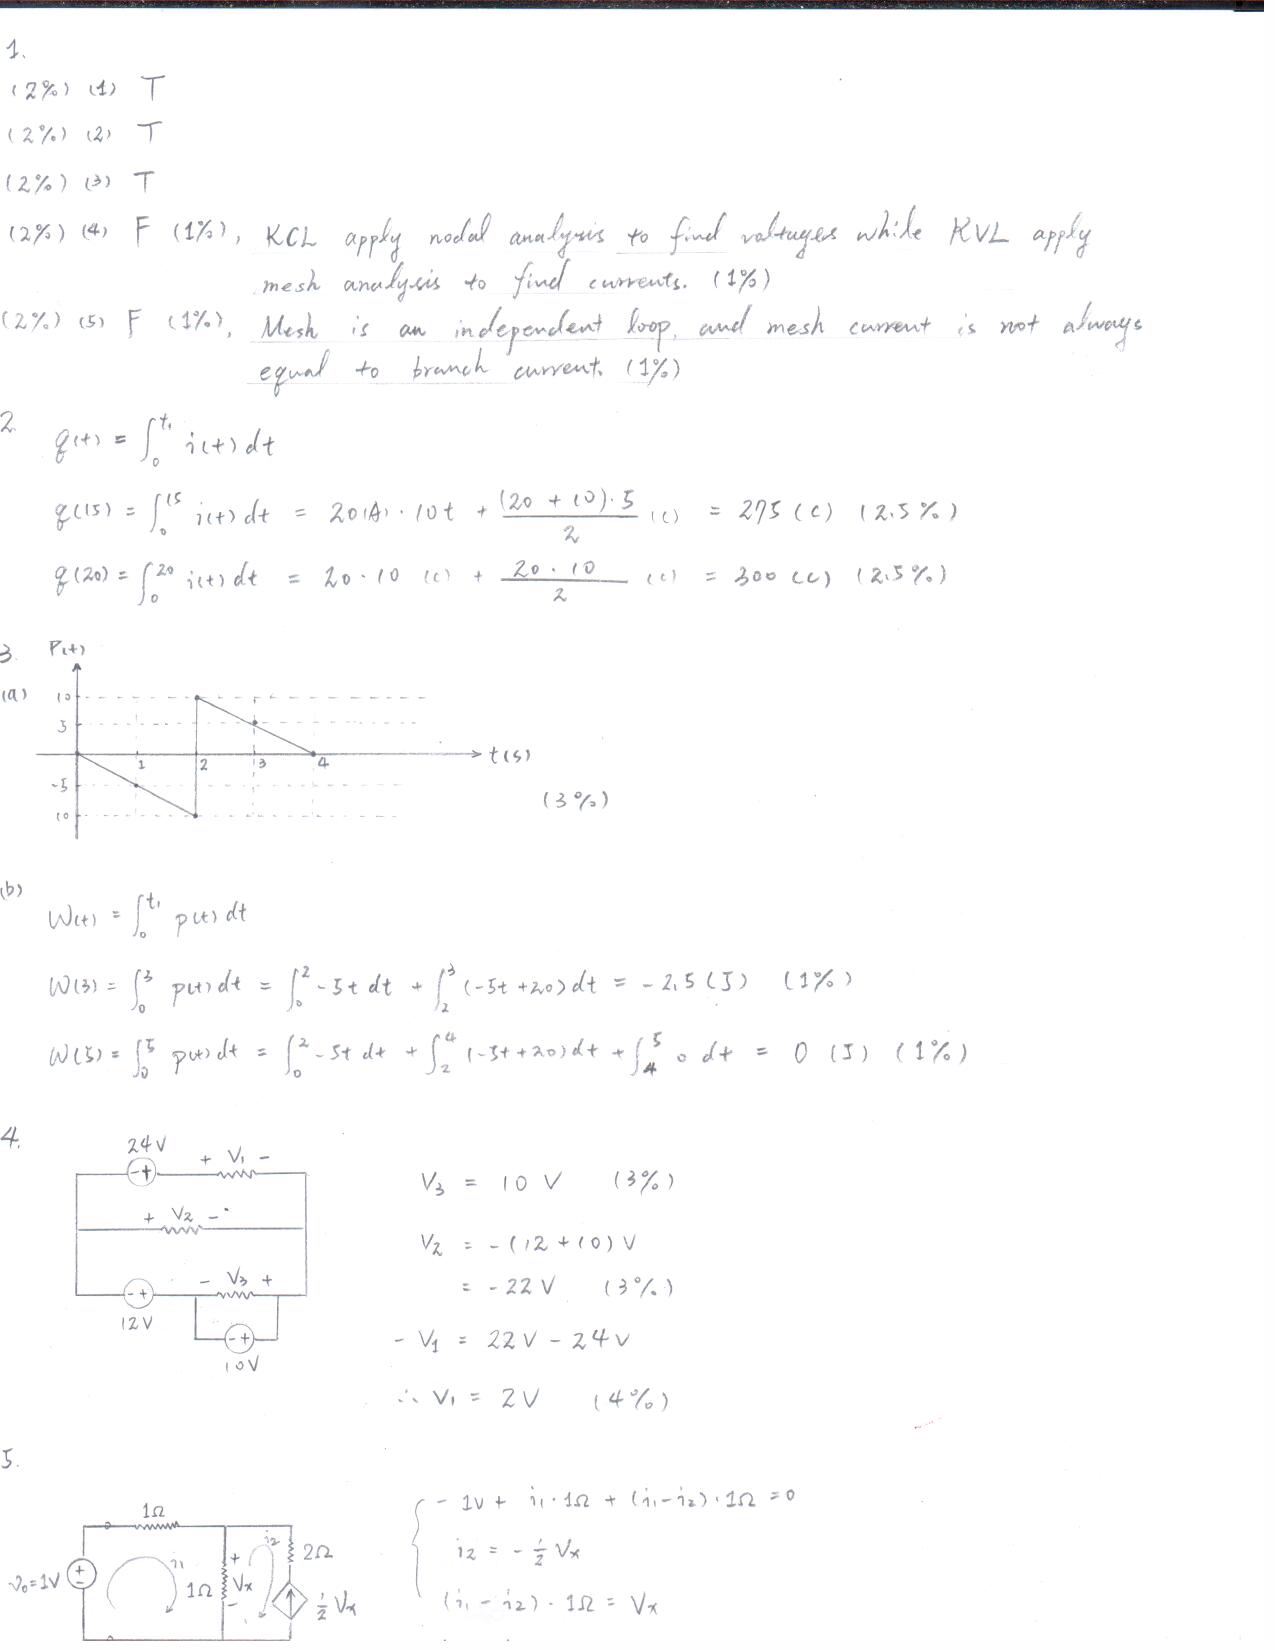 1.
(2%) (1) T
(2%) (2) T
(2%) (3) T
(2%) (4) F (1%), KCL apply nodal analysis to find voltages while KVL apply
mesh analysis to find currents. (1%)
(2%) (5) F (1%), Mesh is an independent loop, and mesh current is not always
equal to branch current. (1%)
2.
q(t) = ∫₀^t₁ i(t) dt
q(15) = ∫₀^15 i(t) dt = 20(A) · 10t + (20 + 10)·5 / 2 (C) = 275 (C) (2.5%)
q(20) = ∫₀^20 i(t) dt = 20·10 (C) + 20·10 / 2 (C) = 300 (C) (2.5%)
3. P(t)
(a) 10
5
1 2 3 4 t(s)
-5
10
(3%)
(b)
W(t) = ∫₀^t₁ p(t) dt
W(3) = ∫₀^3 p(t) dt = ∫₀^2 -5t dt + ∫₂^3 (-5t+20) dt = -2.5 (J) (1%)
W(5) = ∫₀^5 p(t) dt = ∫₀^2 -5t dt + ∫₂^4 (-5t+20) dt + ∫₄^5 0 dt = 0 (J) (1%)
4.
24V
+ V₁ -
- +
+ V₂ -
- V₃ +
- +
12V
- +
10V
V₃ = 10 V (3%)
V₂ = -(12+10) V
= -22 V (3%)
- V₁ = 22V - 24V
∴ V₁ = 2V (4%)
5.
1Ω
v₀=1V
+ -
i₁
1Ω
+ Vx -
i₂
2Ω
½ Vx
- 1V + i₁·1Ω + (i₁-i₂)·1Ω = 0
i₂ = - ½ Vx
(i₁ - i₂)·1Ω = Vx